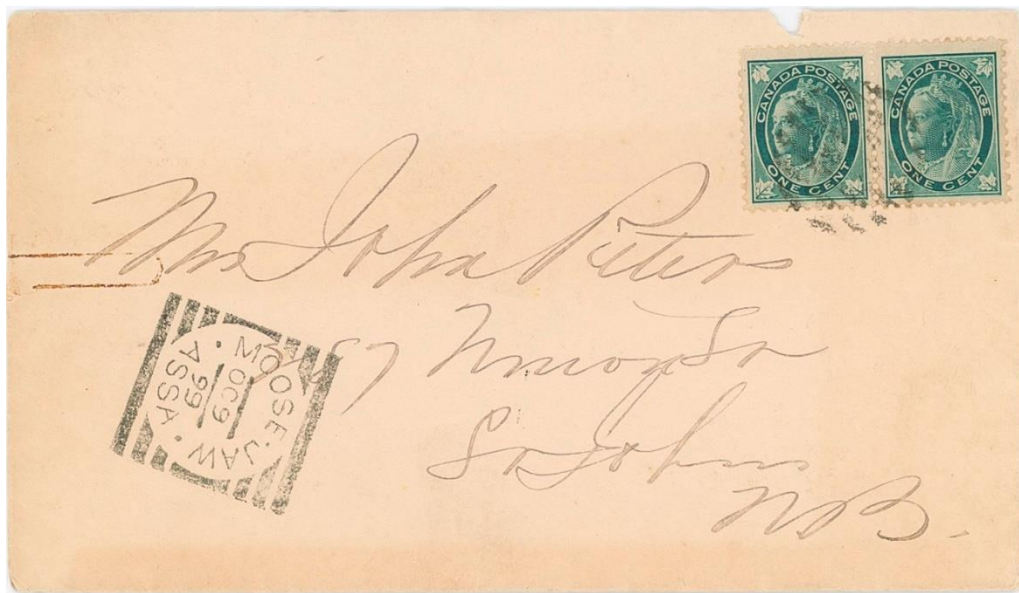 CANADA POSTAGE
ONE CENT
CANADA POSTAGE
ONE CENT
Mrs John Peters
Union St
St John
N.B.
MOOSE. JAW.
OC 9
99
ASSA